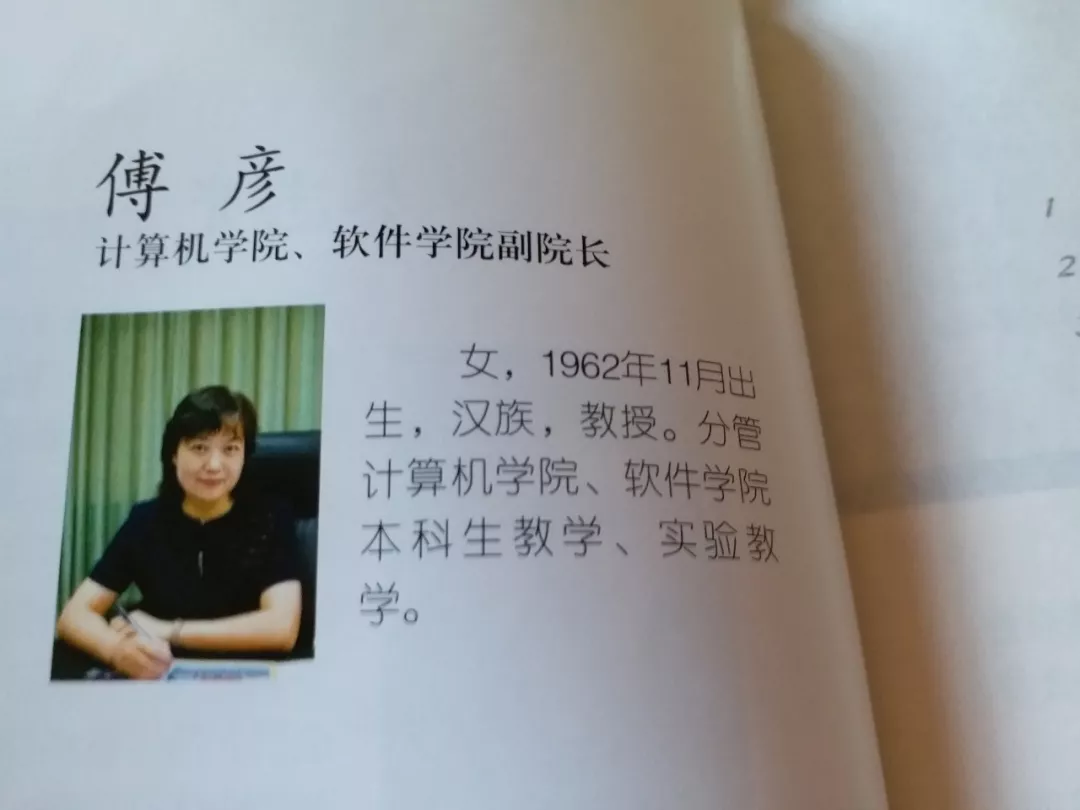 傅 彦
计算机学院、软件学院副院长
女，1962年11月出
生，汉族，教授。分管
计算机学院、软件学院
本科生教学、实验教
学。
1
2